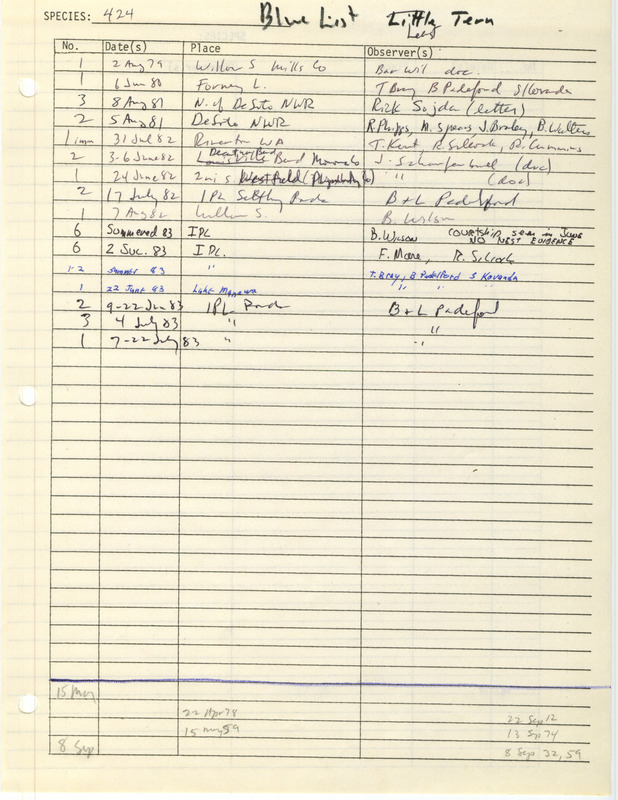 SPECIES: 424 Blue List Little Tern
Least
No. Date(s) Place Observer(s)
1 2 Aug 79 Willow S Mills Co Bar Wil doc.
1 6 Jun 80 Forney L. T Bray B Padelford S Kovanda
3 8 Aug 81 N. of DeSoto NWR Rick Sojda (letter)
2 5 Aug 81 DeSoto NWR R. Phipps, M. Spears J. Braley, B. Walters
1 imm 31 Jul 82 Riverton WA T. Kent, R. Silcock, R. Cummins
2 3-6 June 82 Bend Monona Co J. Scharfenberg (doc)
1 24 June 82 2 mi s. Westfield (Plymouth Co) " (doc)
2 17 July 82 IPL Settling Ponds B + L Padelford
1 7 Aug 82 S. B. Wilson
6 Summered 83 IPL B. Wilson COURTSHIP seen in June
NO NEST EVIDENCE
6 2 Jul. 83 IPL. F. More, R. Silcock
1-2 Summer 83 " T. Bray, B Padelford S Kovanda
1 22 June 83 Lake Manawa " " "
2 9-22 Jun 83 IPL Pond B + L Padelford
3 4 July 83 " "
1 7-22 July 83 " "
15 May
22 Apr 78 22 Sep 12
15 May 59 13 Sep 74
8 Sep 8 Sep 32, 59